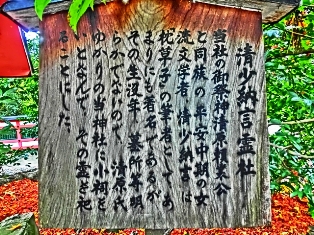 清少納言霊社
当社の御祭神清原頼業公
と同族の平安中期の女
流文学者、清少納言は
枕草子の筆者としてあ
まりにも著名であるが
その生没年、墓所等明
らかでないので、清原氏
ゆかりの当神社に小祠を
いとなんで、その霊を祀
ることにした。